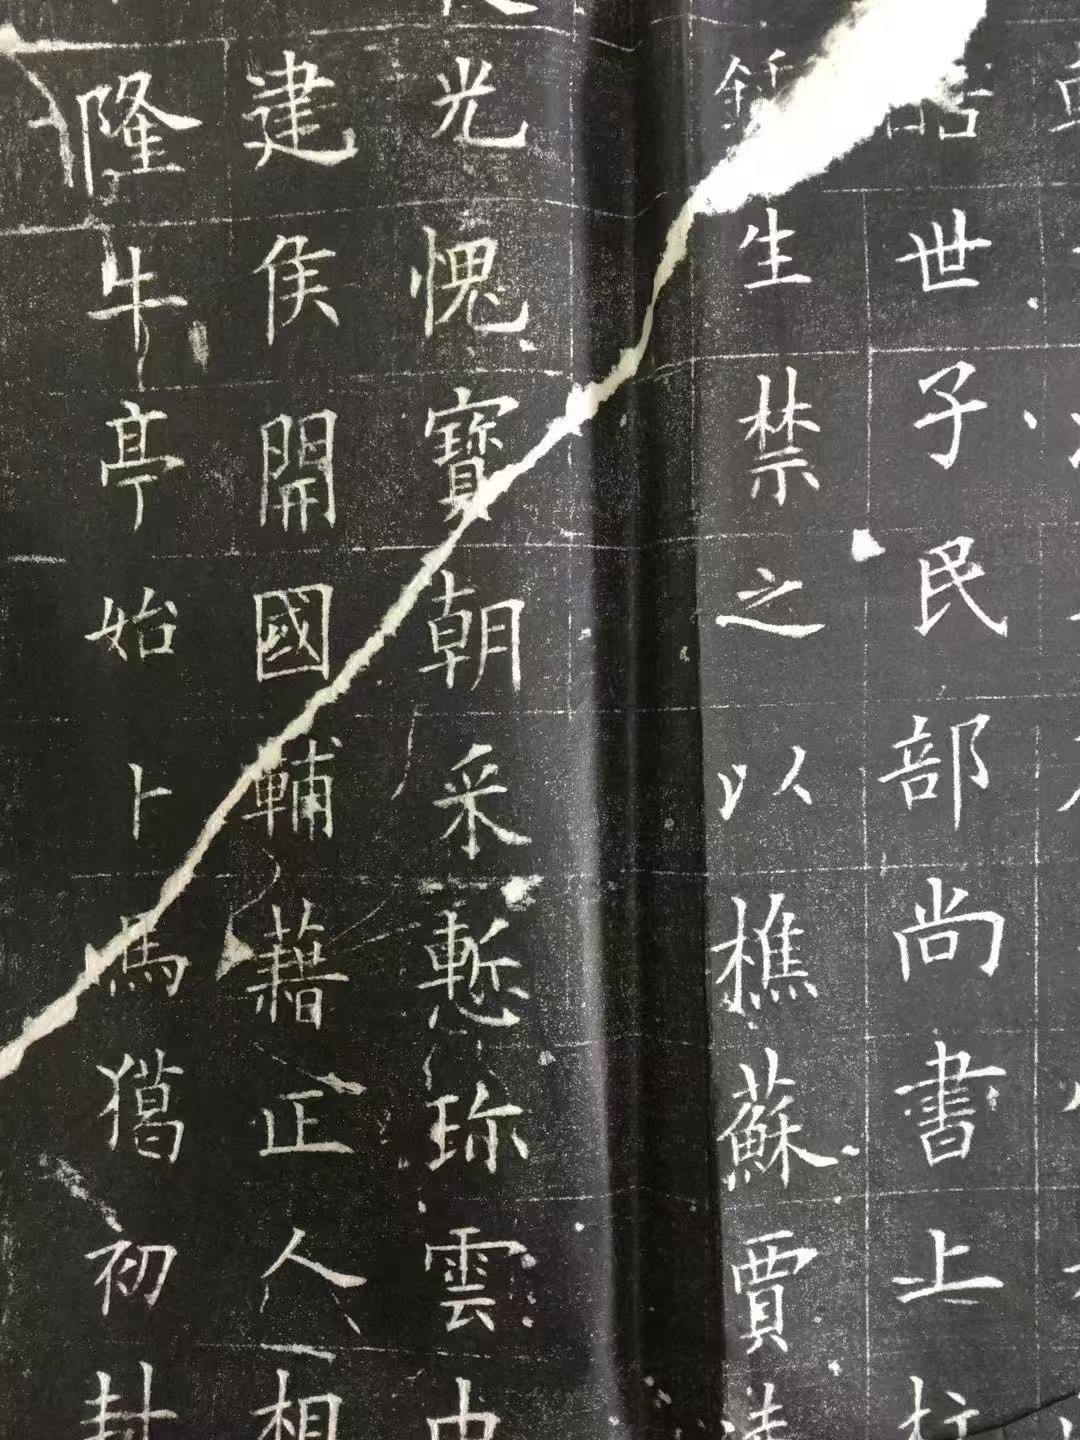 世子民部尚書上柱
生禁之以樵蘇賈
光愧寶朝采慙珎雲
建侯開國輔藉正人相
隆牛亭始卜馬獵初封